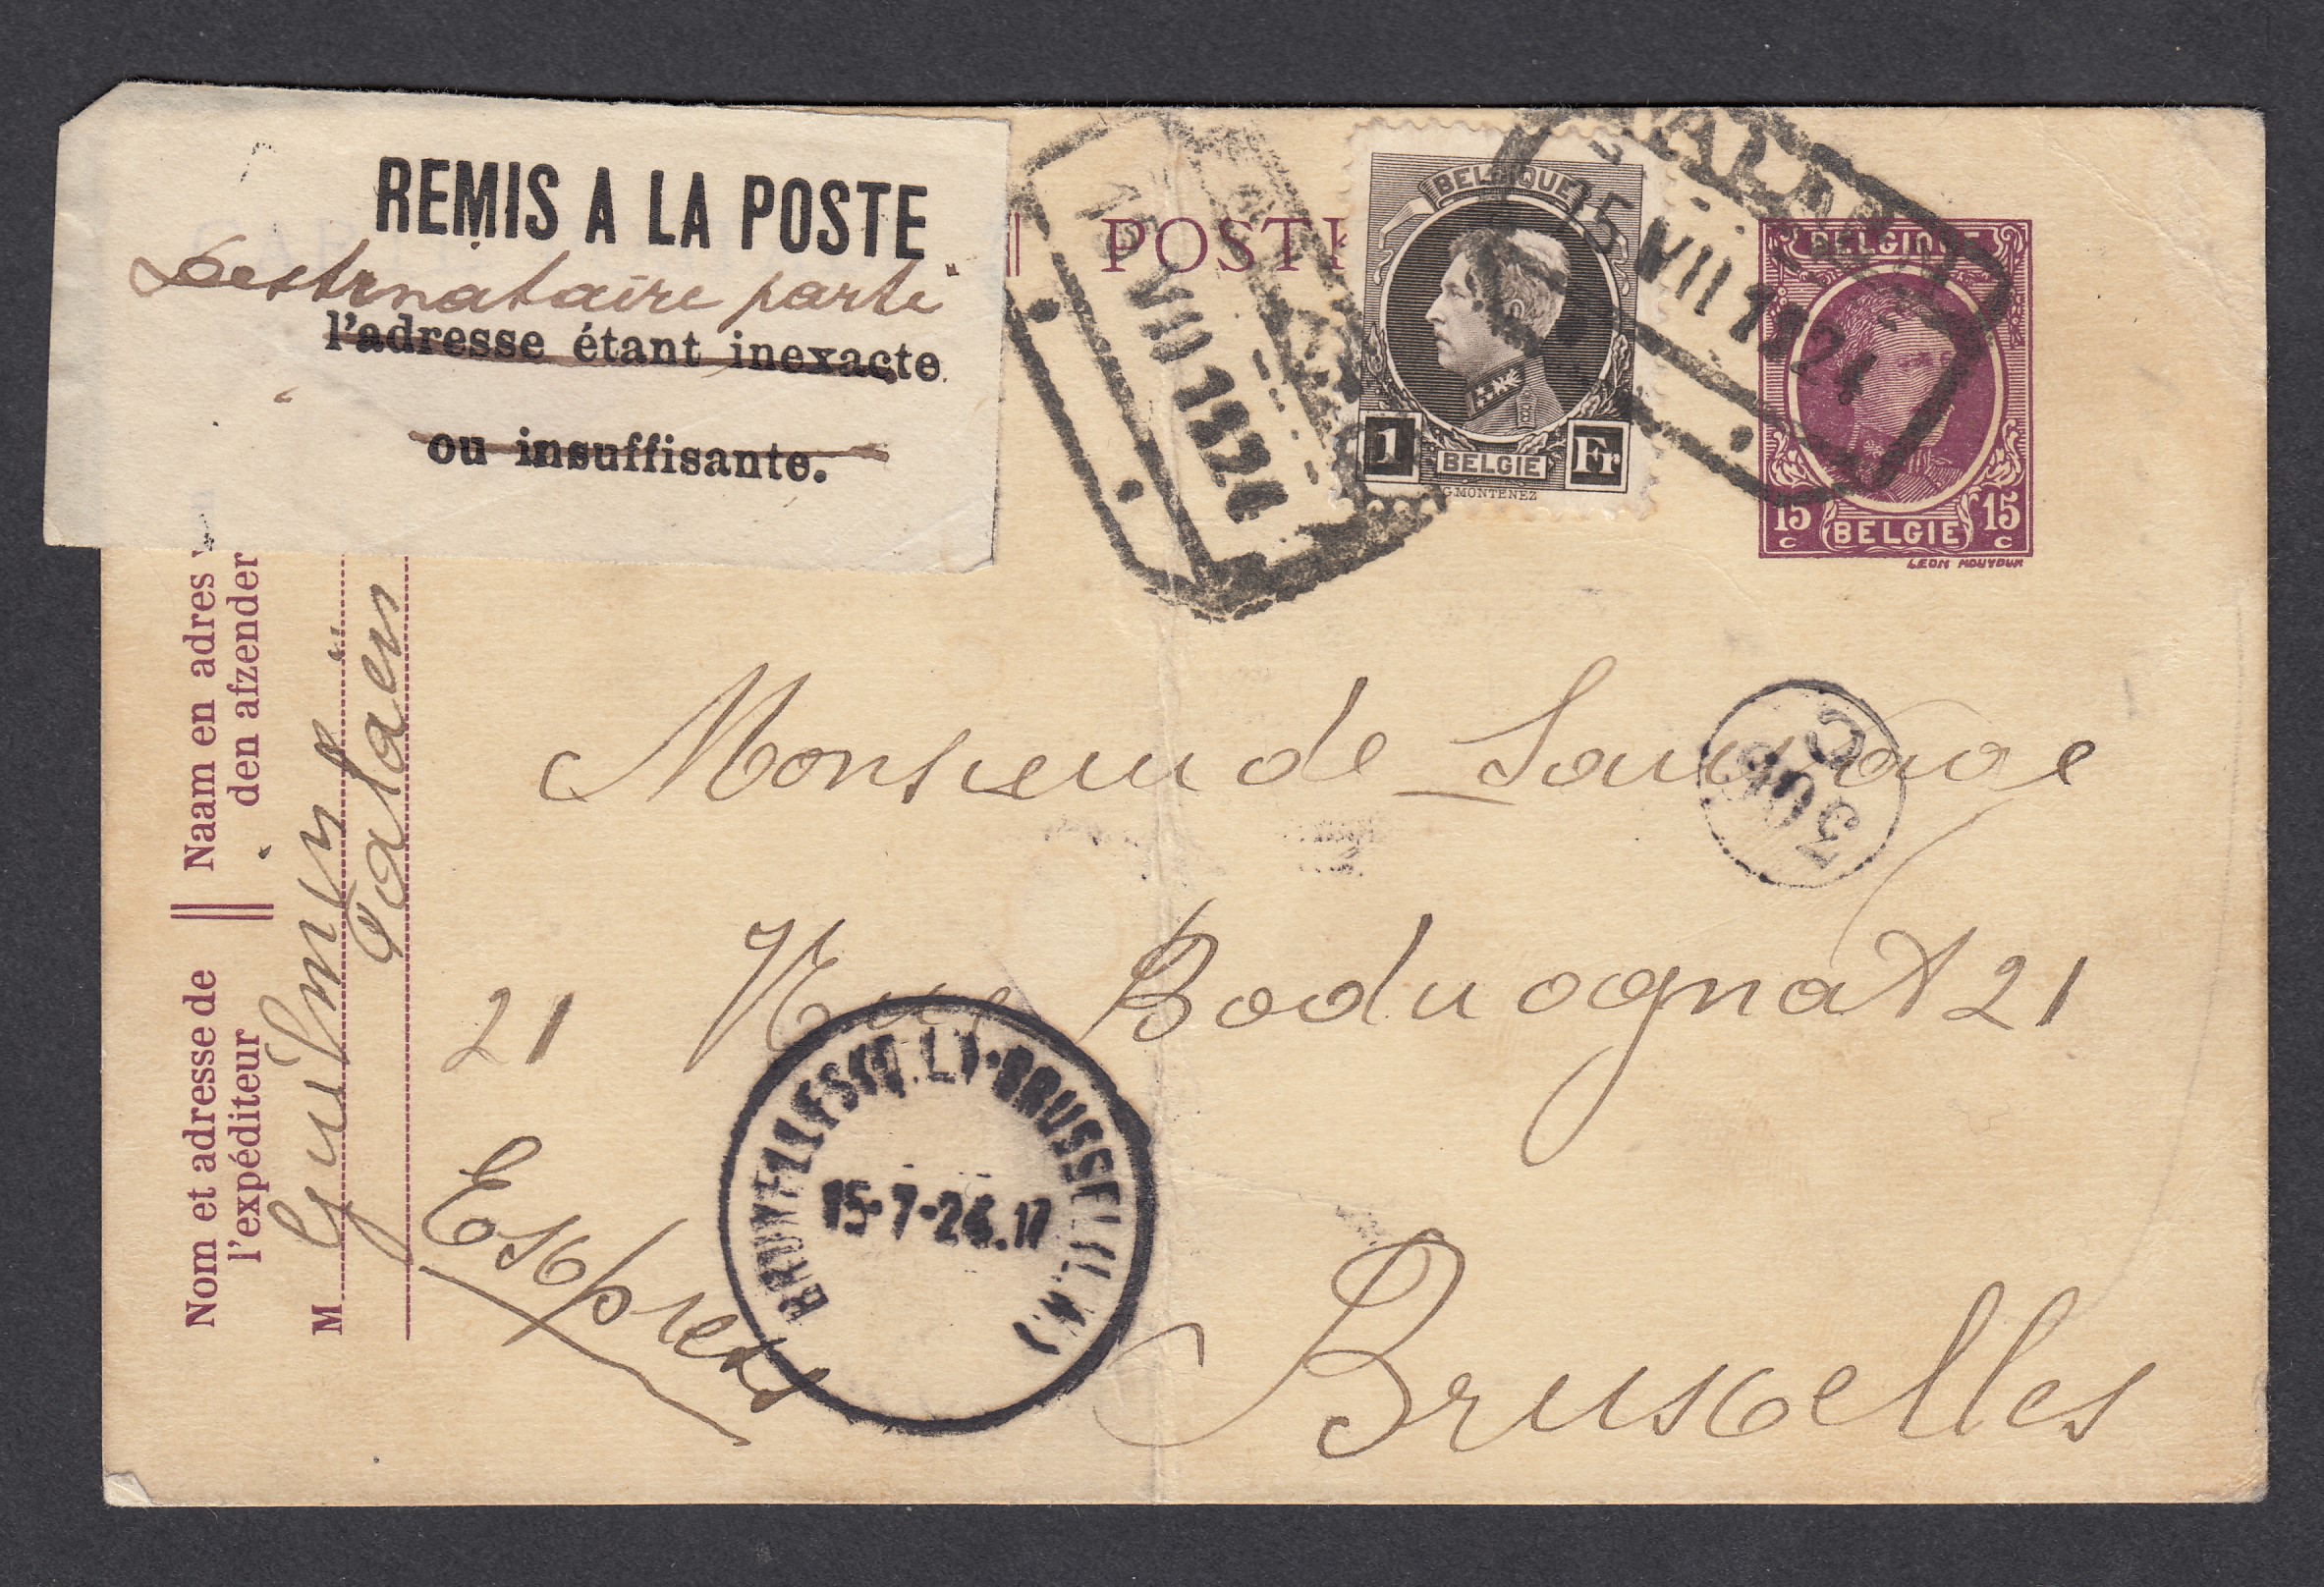 REMIS A LA POSTE
Destinataire parti
l'adresse étant inexacte
ou insuffisante.
POSTK
15 VII 1924
BELGIQUE
1 BELGIE Fr
G.MONTENEZ
15 VII 1924
BELGIQUE
15 c BELGIE 15 c
Naam en adres v
den afzender
Nom et adresse de
l'expéditeur
M Guilmin
Calaen
Monsieur de
21 Rue Boduognat 21
Bruxelles
Exprès
BRUXELLES(Q.L)·BRUSSEL(L.W)
15-7-24.17